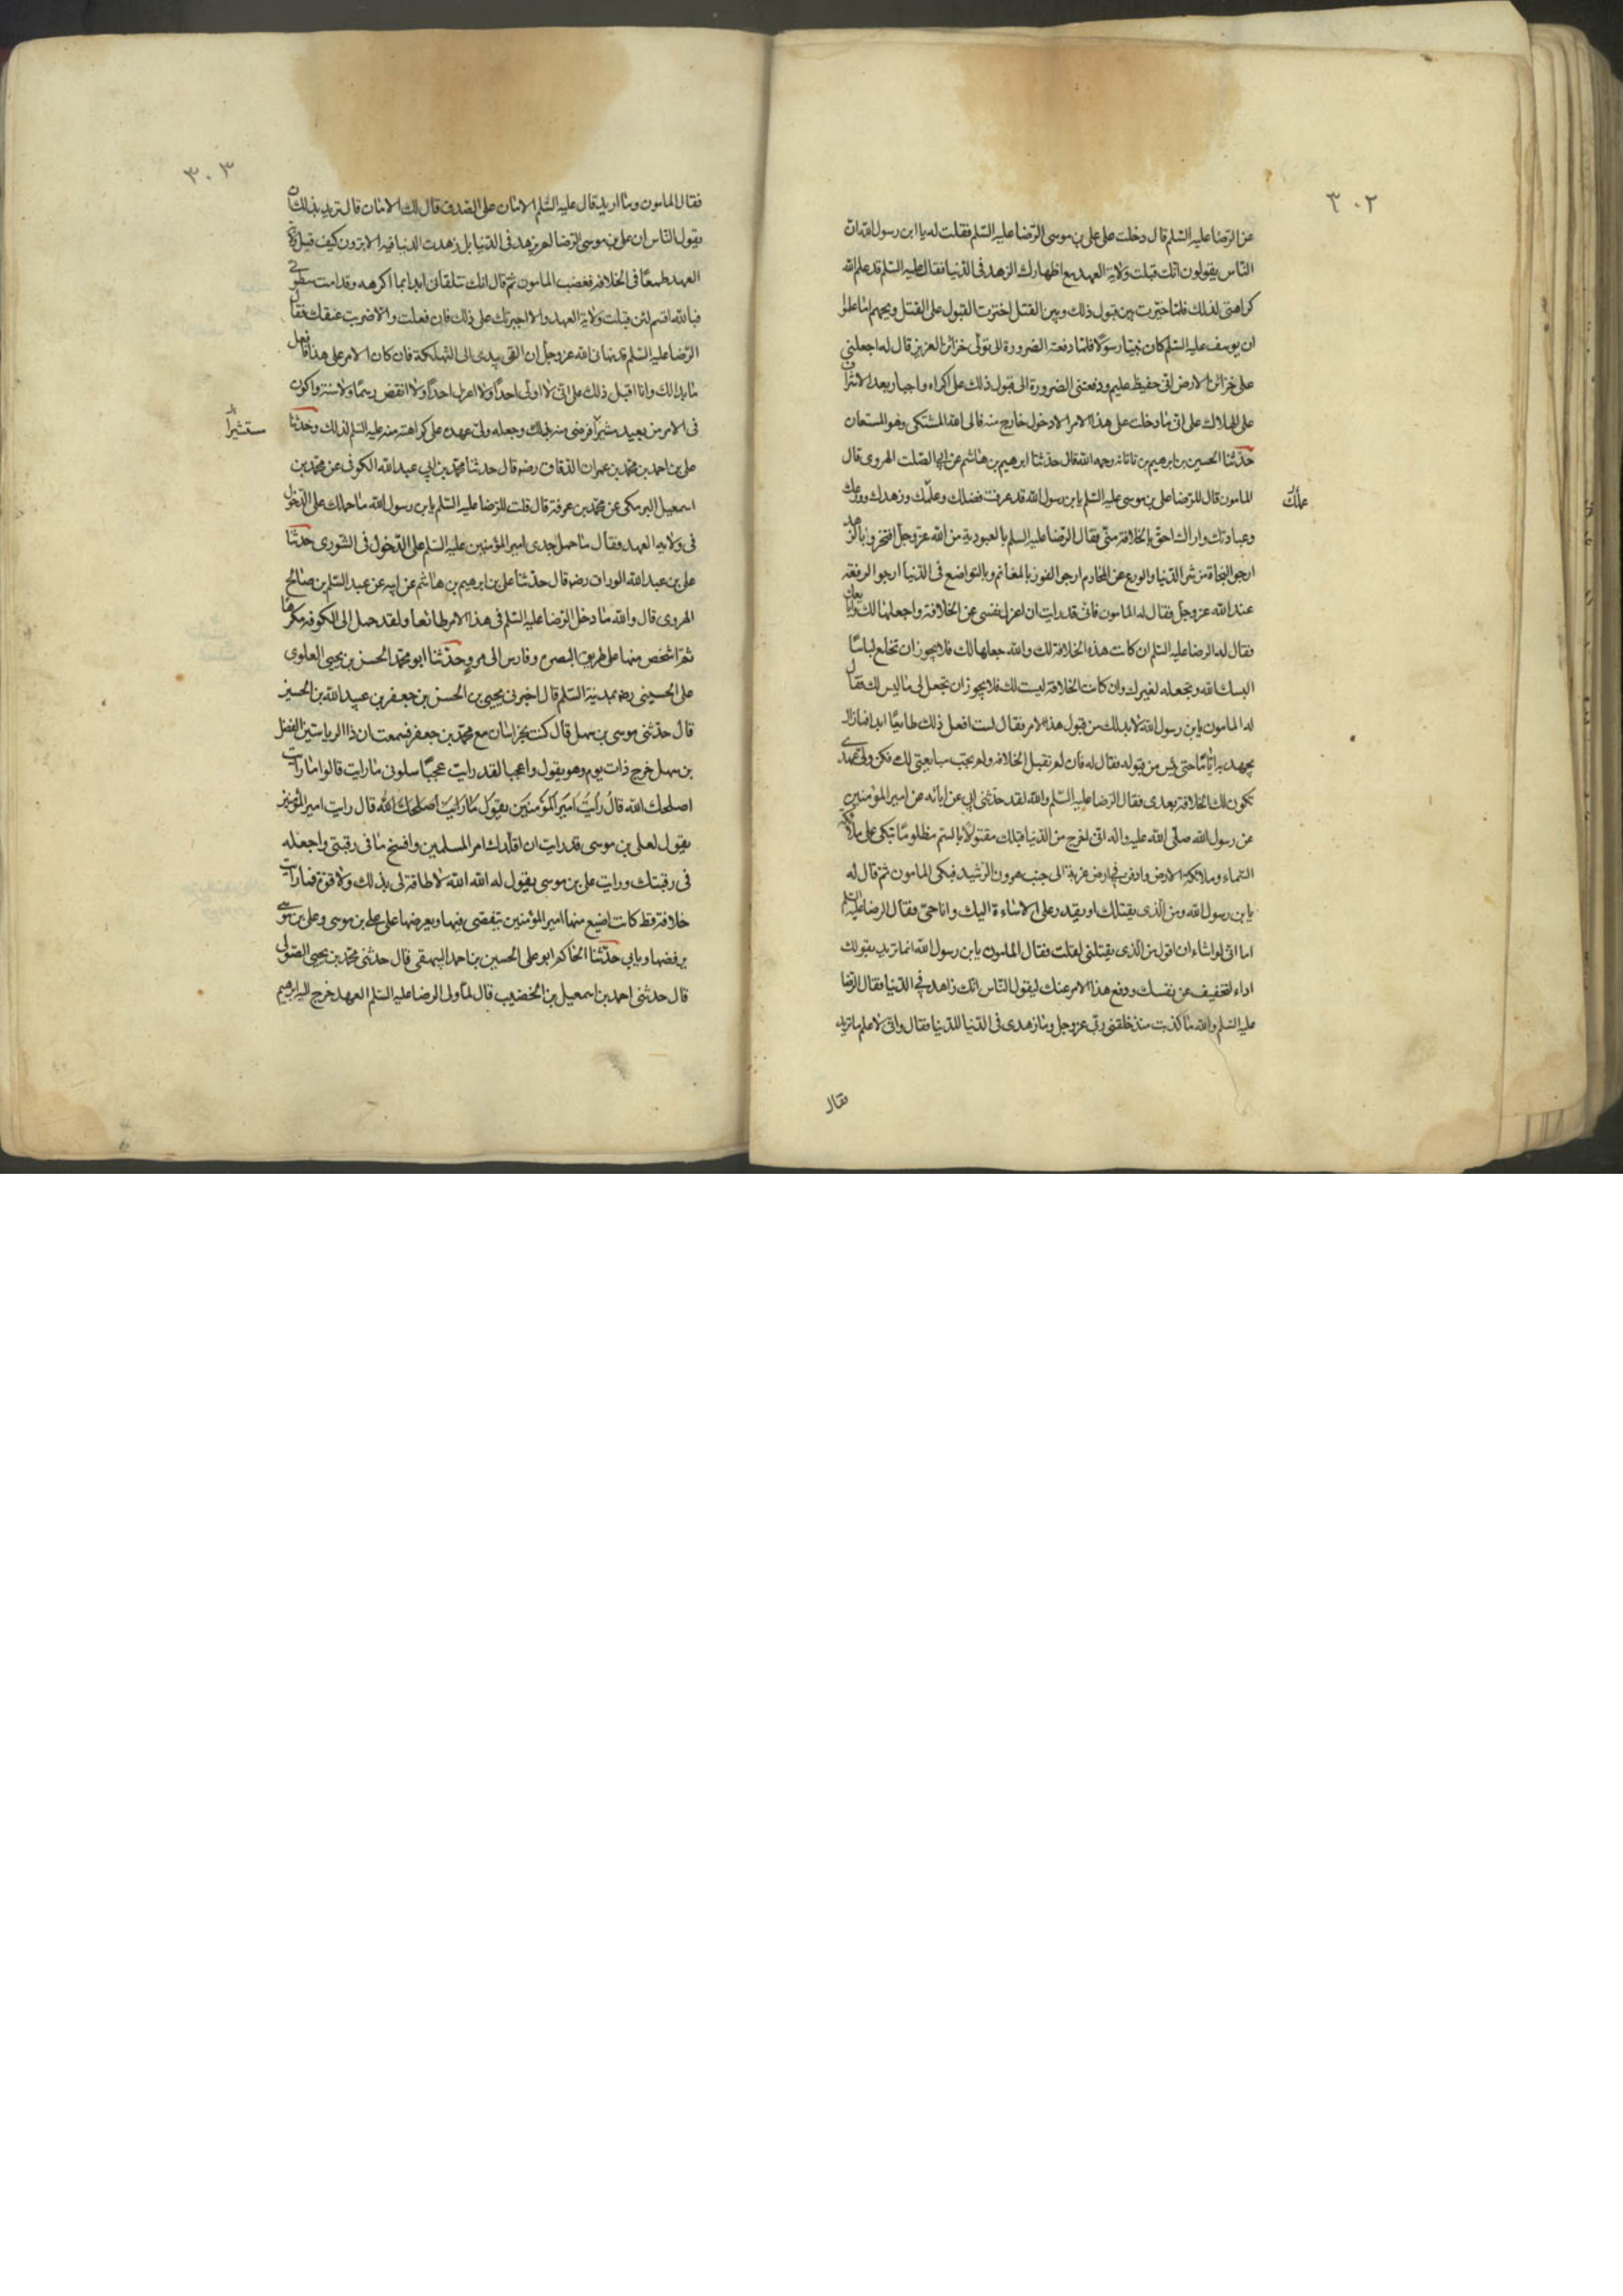 ٣٠٢
عن الرضا عليه السلم قال دخلت على علي بن موسى الرضا عليه السلم فقلت له يا ابن رسول الله ان
الناس يقولون انك قبلت ولاية العهد مع اظهارك الزهد فى الدنيا فقال عليه السلم قد علم الله
كراهتى لذلك فلما خيرت بين قبول ذلك وبين القتل اخترت القبول على القتل ويحهم اما علموا
ان يوسف عليه السلم كان نبيا رسولا فلما دفعته الضرورة الى تولى خزائن العزيز قال له اجعلني
على خزائن الارض انى حفيظ عليم ودفعتنى الضرورة الى قبول ذلك على اكراه واجبار بعد الاشراف
على الهلاك على انى ما دخلت على هذا الامر الا دخول خارج منه فالى الله المشتكى وهو المستعان
حدثنا الحسين بن ابرهيم بن ناتانه رحمه الله قال حدثنا ابرهيم بن هاشم عن ابي الصلت الهروى قال
المامون قال للرضا على بن موسى عليه السلم يابن رسول الله قد عرفت فضلك وعلمك وزهدك وورعك
علمك
وعبادتك واراك احق بالخلافة منى فقال الرضا عليه السلم بالعبودية من الله عز وجل افتخر وبالزهد
ارجو النجاة من شر الدنيا والورع عن المحارم ارجو الفوز بالمغانم وبالتواضع فى الدنيا ارجو الرفعة
عند الله عز وجل فقال له المامون فانى قد رايت ان اعزل نفسى عن الخلافة واجعلها لك وابايعك
فقال له الرضا عليه السلم ان كانت هذه الخلافة لك والله جعلها لك فلا يجوز ان تخلع لباسا
البسك الله وتجعله لغيرك وان كانت الخلافة ليست لك فلا يجوز ان تجعل لى ما ليس لك فقال
له المامون يابن رسول الله لا بد لك من قبول هذا الامر فقال لست افعل ذلك طايعا ابدا فما زال
يجهد به اياما حتى يئس من قبوله فقال له فان لم تقبل الخلافة ولم تجب مبايعتى لك فكن ولى عهدى
تكون لك الخلافة بعدى فقال الرضا عليه السلم والله لقد حدثنى ابي عن ابائه عن امير المؤمنين
عن رسول الله صلى الله عليه واله انى اخرج من الدنيا قبلك مقتولا بالسم مظلوما تبكى على ملائكة
السماء وملائكة الارض وادفن في ارض غربة الى جنب هرون الرشيد فبكى المامون ثم قال له
يابن رسول الله ومن الذى يقتلك او يقدر على الاساءة اليك وانا حى فقال الرضا عليه السلم
اما انى لو اشاء ان اقول من الذى يقتلنى لقلت فقال المامون يابن رسول الله انما تريد بقولك
اداء لتخفيف عن نفسك ودفع هذا الامر عنك ليقول الناس انك زاهد في الدنيا فقال الرضا
عليه السلم والله ما كذبت منذ خلقنى ربى عز وجل وما زهدى فى الدنيا للدنيا فقال وانى لاعلم ما تريد
فقال
٣٠٣
فقال المامون وما اريد قال عليه السلم الامان على الصدق قال لك الامان قال تريد بذلك ان
يقول الناس ان على بن موسى الرضا لم يزهد فى الدنيا بل زهدت الدنيا فيه الا ترون كيف قبل ولاية
العهد طمعا فى الخلافه فغضب المامون ثم قال انك تتلقانى ابدا بما اكرهه وقد امنت سطوتى
فبالله اقسم لئن قبلت ولاية العهد والا اجبرتك على ذلك فان فعلت والا ضربت عنقك فقال
الرضا عليه السلم قد نهانى الله عز وجل ان القى بيدى الى التهلكة فان كان الامر على هذا فافعل
ما بدا لك وانا اقبل ذلك على انى لا اولى احدا ولا اعزل احدا ولا انقض رسما ولا سنة واكون
فى الامر من بعيد مشيرا فرضى منه بذلك وجعله ولى عهده على كراهته منه عليه السلم لذلك وحدثنا
مستشيرا
على بن احمد بن محمد بن عمران الدقاق رضه قال حدثنا محمد بن ابي عبد الله الكوفى عن محمد بن
اسمعيل البرمكى عن محمد بن عرفة قال قلت للرضا عليه السلم يابن رسول الله ما حملك على الدخول
فى ولاية العهد فقال ما حمل جدى امير المؤمنين عليه السلم على الدخول فى الشورى حدثنا
على بن عبد الله الوراق رضه قال حدثنا على بن ابرهيم بن هاشم عن ابيه عن عبد السلم بن صالح
الهروى قال والله ما دخل الرضا عليه السلم فى هذا الامر طائعا ولقد حمل الى الكوفة مكرها
ثم اشخص منها على طريق البصره وفارس الى مرو حدثنا ابو محمد الحسن بن يحيى العلوى
على الحسينى رضه بمدينة السلم قال اخبرنى يحيى بن الحسن بن جعفر بن عبيد الله بن الحسين
قال حدثنى موسى بن سهل قال كنت بخراسان مع محمد بن جعفر فسمعت ان ذا الرياستين الفضل
بن سهل خرج ذات يوم وهو يقول واعجبا لقد رايت عجبا سلونى ما رايت قالوا ما رايت
اصلحك الله قال رايت امير المؤمنين يقول ما رايت اصلحك الله قال رايت امير المؤمنين
يقول لعلى بن موسى قد رايت ان اقلدك امر المسلمين وافسخ ما فى رقبتى واجعله
فى رقبتك ورايت على بن موسى يقول له الله الله لا طاقة لى بذلك ولا قوة فما رايت
خلافة قط كانت اضيع منها امير المؤمنين يتفصى فيها ويعرضها على على بن موسى وعلى بن موسى
يرفضها ويابى حدثنا الحاكم ابو على الحسين بن احمد البيهقى قال حدثنى محمد بن يحيى الصولى
قال حدثنى احمد بن اسمعيل بن الخضيب قال لما ولى الرضا عليه السلم العهد خرج اليه ابرهيم